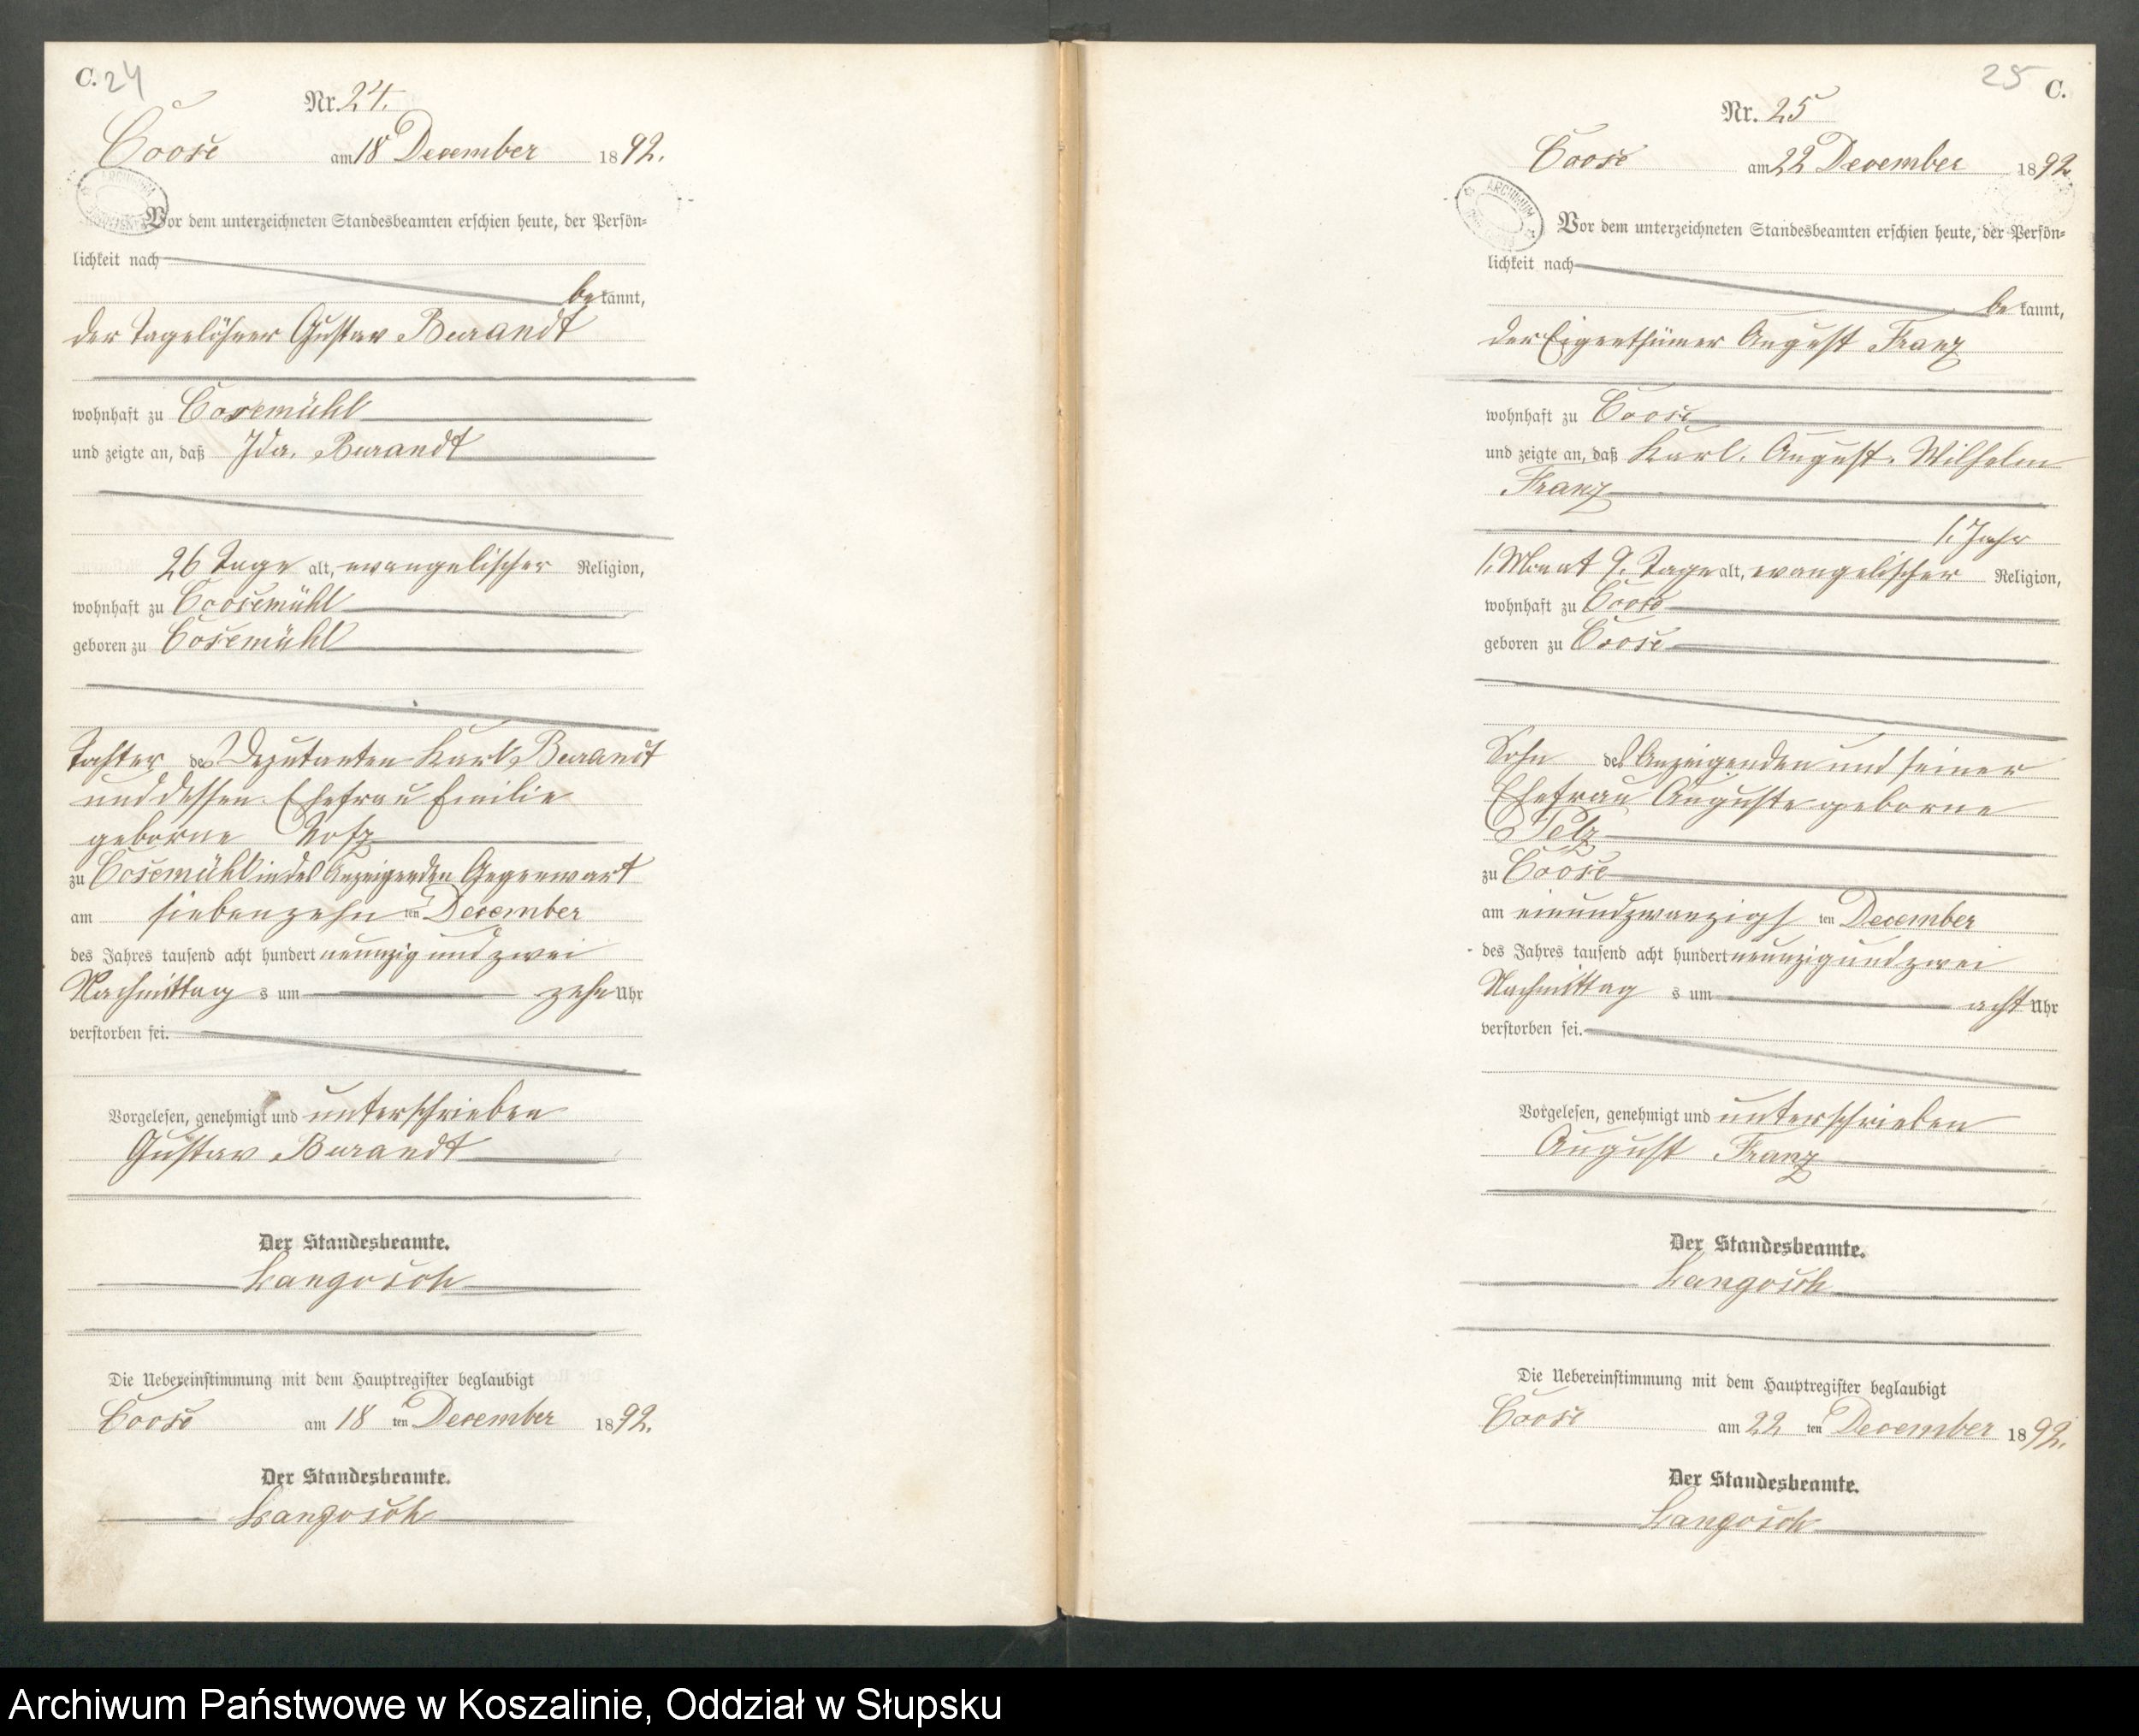 C. 24
Nr. 24.
Coose am 18 December 1892.
Vor dem unterzeichneten Standesbeamten erschien heute, der Persön-
lichkeit nach
bekannt,
der Tagelöhner Gustav Burandt
wohnhaft zu Cosemühl
und zeigte an, daß Ida, Burandt
26 Tage alt, evangelischer Religion,
wohnhaft zu Coosemühl
geboren zu Cosemühl
Tochter des Deputanten Karl Burandt
und dessen Ehefrau Emilie
geborne
zu Cosemühl in des Anzeigenden Gegenwart
am siebenzehn ten December
des Jahres tausend acht hundert neunzig und zwei
Nachmittag s um zehn Uhr
verstorben sei.
Vorgelesen, genehmigt und unterschrieben
Gustav Burandt
Der Standesbeamte.
Langosch
Die Uebereinstimmung mit dem Hauptregister beglaubigt
Coose am 18 ten December 1892.
Der Standesbeamte.
Langosch
25 C.
Nr. 25
Coose am 22 December 1892.
ARCHIWUM
Vor dem unterzeichneten Standesbeamten erschien heute, der Persön-
lichkeit nach
bekannt,
der Eigenthümer August Franz
wohnhaft zu Coose
und zeigte an, daß Karl, August, Wilhelm
Franz
1. Jahr
1. Monat 9. Tage alt, evangelischer Religion,
wohnhaft zu Coose
geboren zu Coose
Sohn des Anzeigenden und seiner
Ehefrau Auguste geborne
Pelz
zu Coose
am einundzwanzigs ten December
des Jahres tausend acht hundert neunzig und zwei
Nachmittag s um acht Uhr
verstorben sei.
Vorgelesen, genehmigt und unterschrieben
August Franz
Der Standesbeamte.
Langosch
Die Uebereinstimmung mit dem Hauptregister beglaubigt
Coose am 22 ten December 1892.
Der Standesbeamte.
Langosch
Archiwum Państwowe w Koszalinie, Oddział w Słupsku